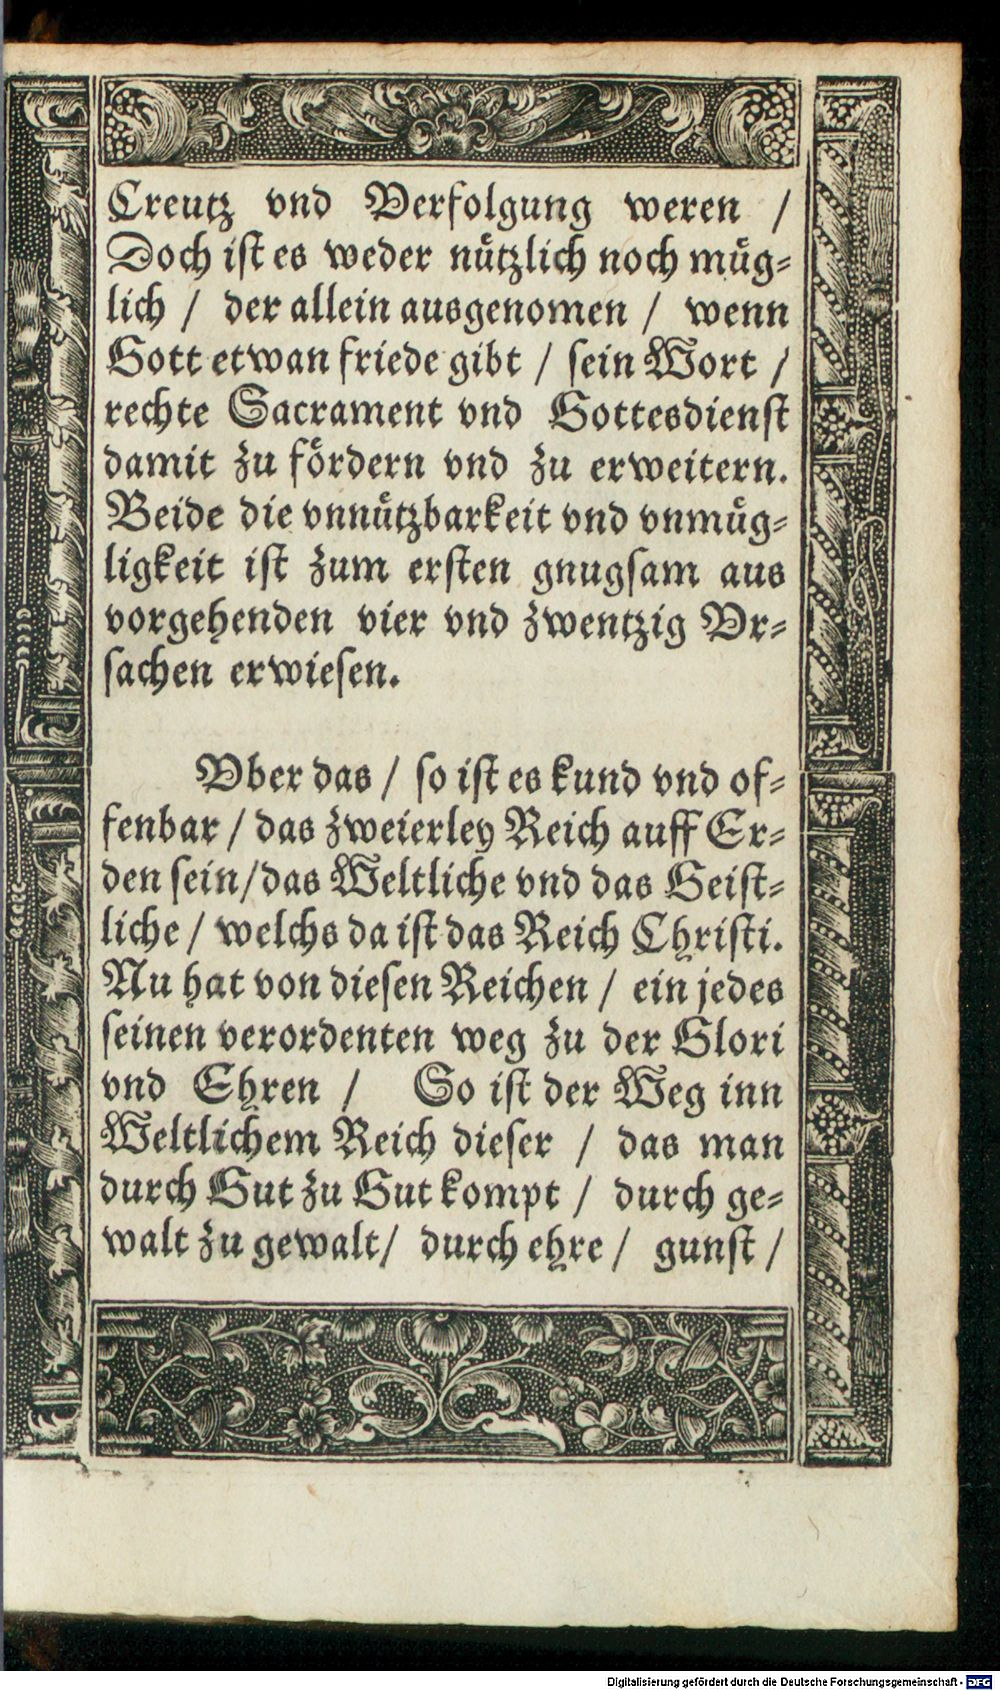 Creutz vnd Verfolgung weren /
Doch ist es weder nuͤtzlich noch muͤg-
lich / der allein ausgenomen / wenn
Gott etwan friede gibt / sein Wort /
rechte Sacrament vnd Gottesdienst
damit zu foͤrdern vnd zu erweitern.
Beide die vnnuͤtzbarkeit vnd vnmuͤg-
ligkeit ist zum ersten gnugsam aus
vorgehenden vier vnd zwentzig Vr-
sachen erwiesen.
Vber das / so ist es kund vnd of-
fenbar / das zweierley Reich auff Er-
den sein/das Weltliche vnd das Geist-
liche / welchs da ist das Reich Christi.
Nu hat von diesen Reichen / ein jedes
seinen verordenten weg zu der Glori
vnd Ehren / So ist der Weg inn
Weltlichem Reich dieser / das man
durch Gut zu Gut kompt / durch ge-
walt zu gewalt/ durch ehre / gunst /
Digitalisierung gefördert durch die Deutsche Forschungsgemeinschaft - DFG